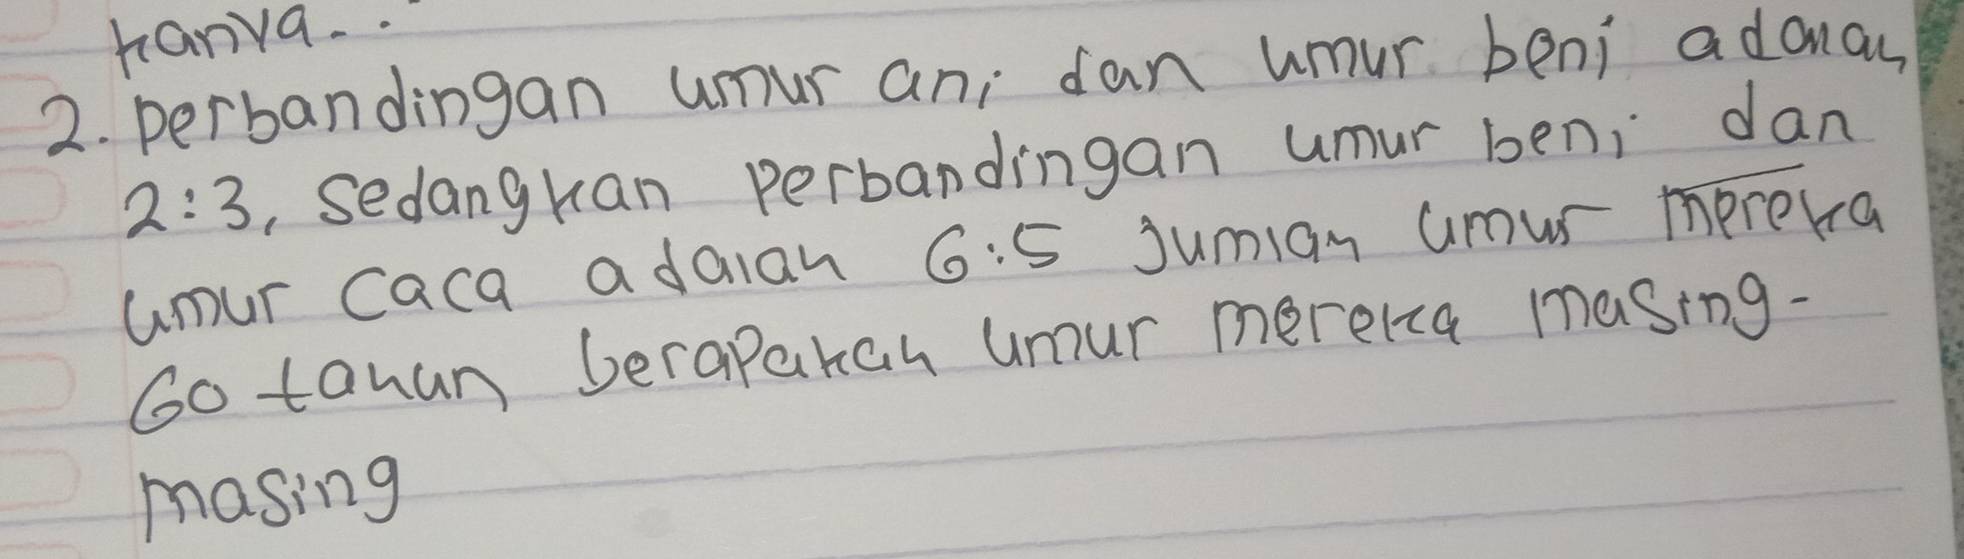 kanya..
2. perbandingan umur ani dan umur beni adalah
2:3, sedangkan perbandingan umur beni dan
umur caca adalah 6:5 jumlah umur mereka
60 tahun berapakah umur mereka masing-
masing